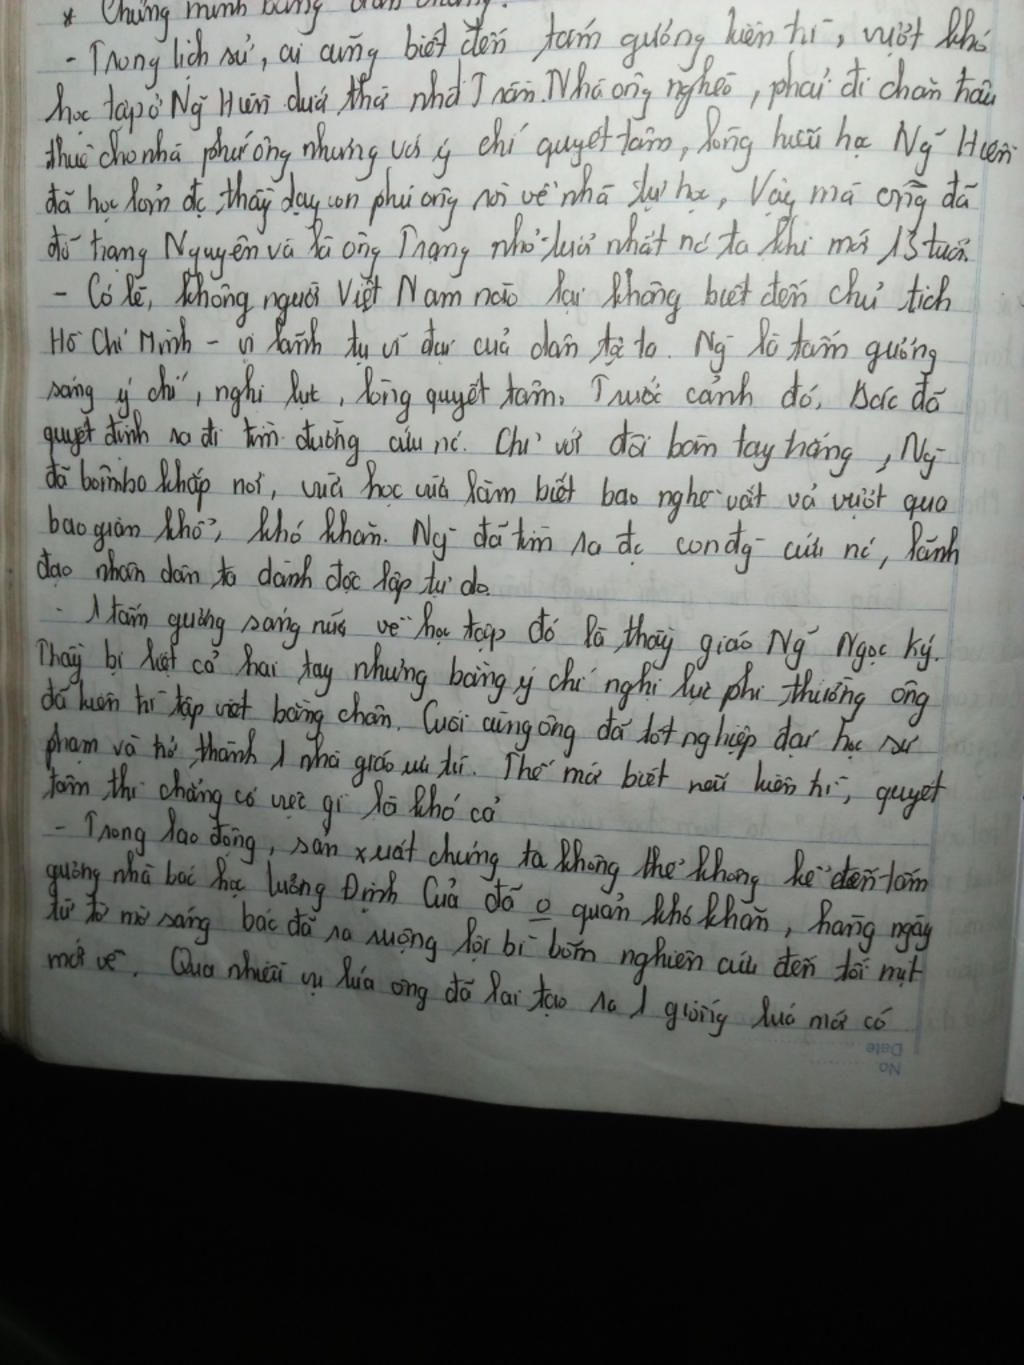 * Chứng minh bằng dẫn chứng:
- Trong lịch sử, ai cũng biết đến tấm gương kiên trì, vượt khó
học tập ở Ng~ Hiền dưới thời nhà Trần. Nhà ông nghèo, phải đi chăn trâu
thuê cho nhà phú ông nhưng với ý chí quyết tâm, lòng hiếu học Ng~ Hiền
đã học lỏm đc thầy dạy con phú ông rồi về nhà tự học, Vậy mà ông đã
đỗ trạng Nguyên và là ông Trạng nhỏ tuổi nhất nc ta khi mới 13 tuổi.
- Có lẽ, không người Việt Nam nào lại không biết đến chủ tịch
Hồ Chí Minh - vị lãnh tụ vĩ đại của dân tộc ta. Ng~ là tấm gương
sáng ý chí, nghị lực, lòng quyết tâm. Trước cảnh đó, Bác đã
quyết định ra đi tìm đường cứu nc. Chỉ với đôi bàn tay trắng, Ng~
đã bôn ba khắp nơi, vừa học vừa làm biết bao nghề vất vả vượt qua
bao gian khổ, khó khăn. Ng~ đã tìm ra đc con đg~ cứu nc, lãnh
đạo nhân dân ta dành độc lập tự do.
- 1 tấm gương sáng nữa về học tập đó là thầy giáo Ng~ Ngọc Ký.
Thầy bị liệt cả hai tay nhưng bằng ý chí nghị lực phi thường ông
đã kiên trì tập viết bằng chân. Cuối cùng ông đã tốt nghiệp đại học sư
phạm và trở thành 1 nhà giáo ưu tú. Thế mới biết nếu kiên trì, quyết
tâm thì chẳng có việc gì là khó cả
- Trong lao động, sản xuất chúng ta không thể không kể đến tấm
gương nhà bác học Lương Định Của đã o quản khó khăn, hàng ngày
từ tờ mờ sáng bác đã ra ruộng lội bì bõm nghiên cứu đến tối mịt
mới về. Qua nhiều vụ lúa ông đã lai tạo ra 1 giống lúa mới có
Date
No